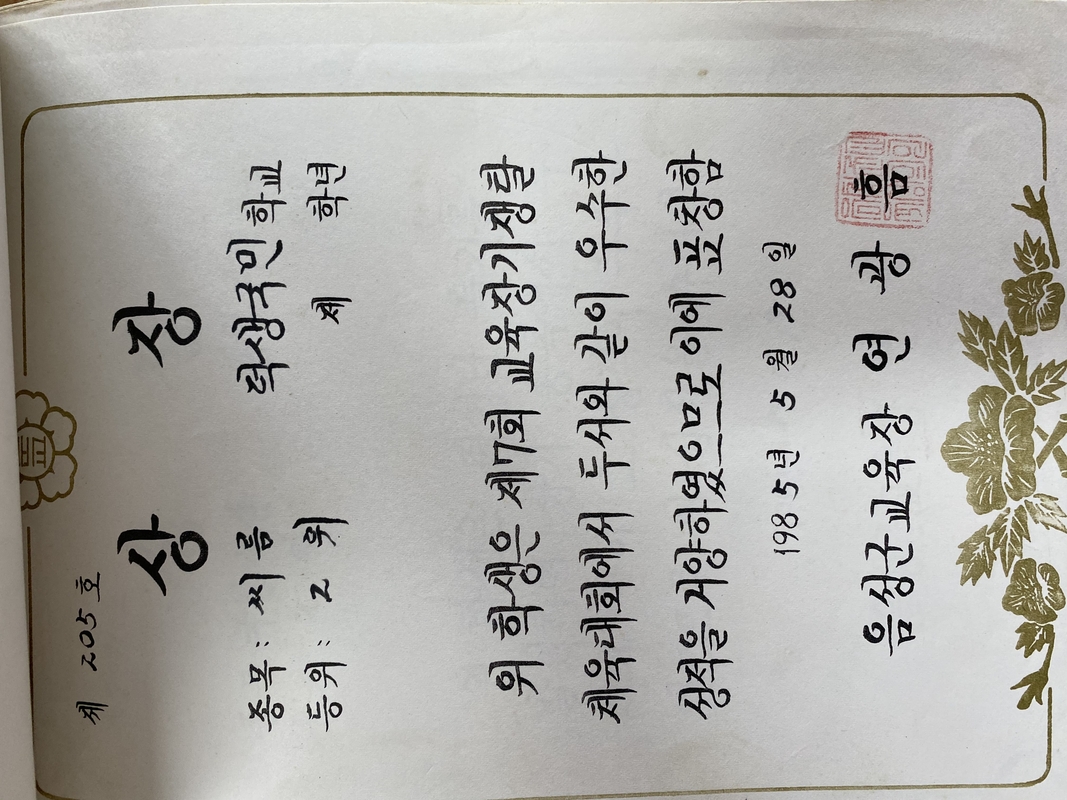 제 205 호
상 장
종목: 씨 름 덕생국민 학교
등위: 2 위 제 학년
위 학생은 제7회 교육장기쟁탈
체육대회에서 두서와 같이 우수한
성적을 거양하였으므로 이에 표창함
1985년 5월 28일
음성군교육장 연 광 흠